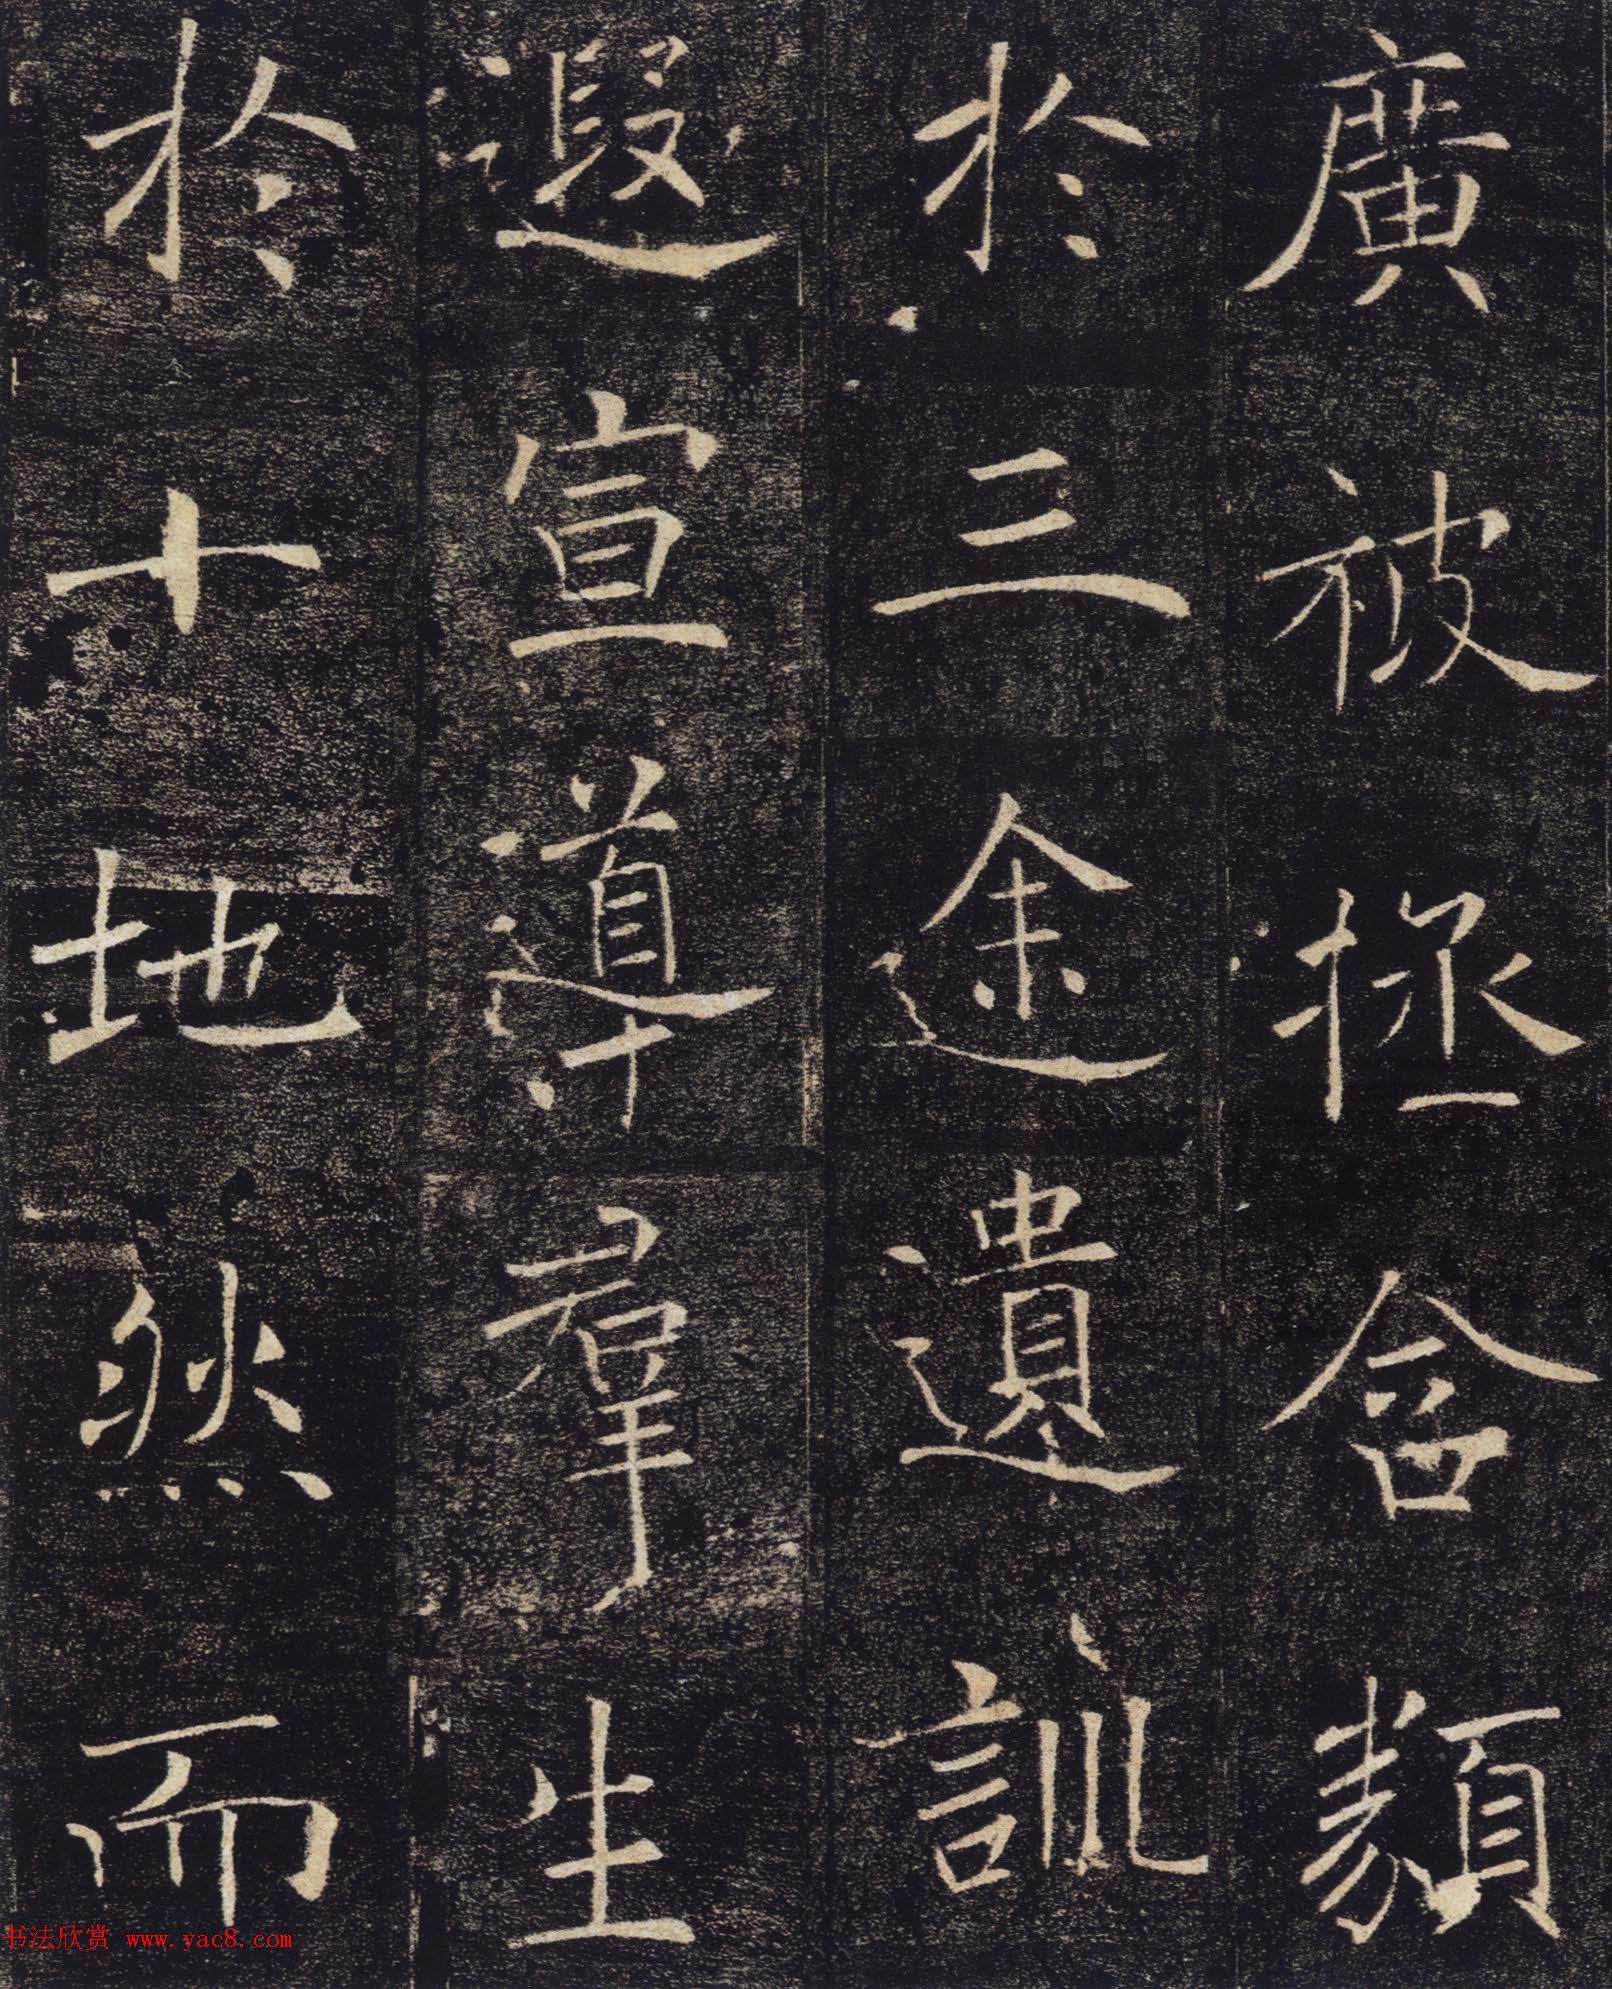 廣被拯含類
於三途遺訓
遐宣導羣生
於十地然而
书法欣赏 www.yac8.com